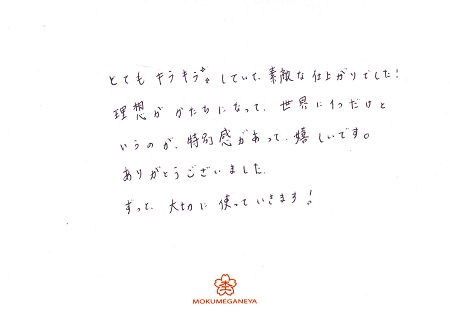 とてもキラキラ。していて、素敵な仕上がりでした!
理想がかたちになって、世界に1つだけと
いうのが、特別感があって、嬉しいです。
ありがとうございました。
ずって、大切に使っていきます!
MOKUMEGANEYA